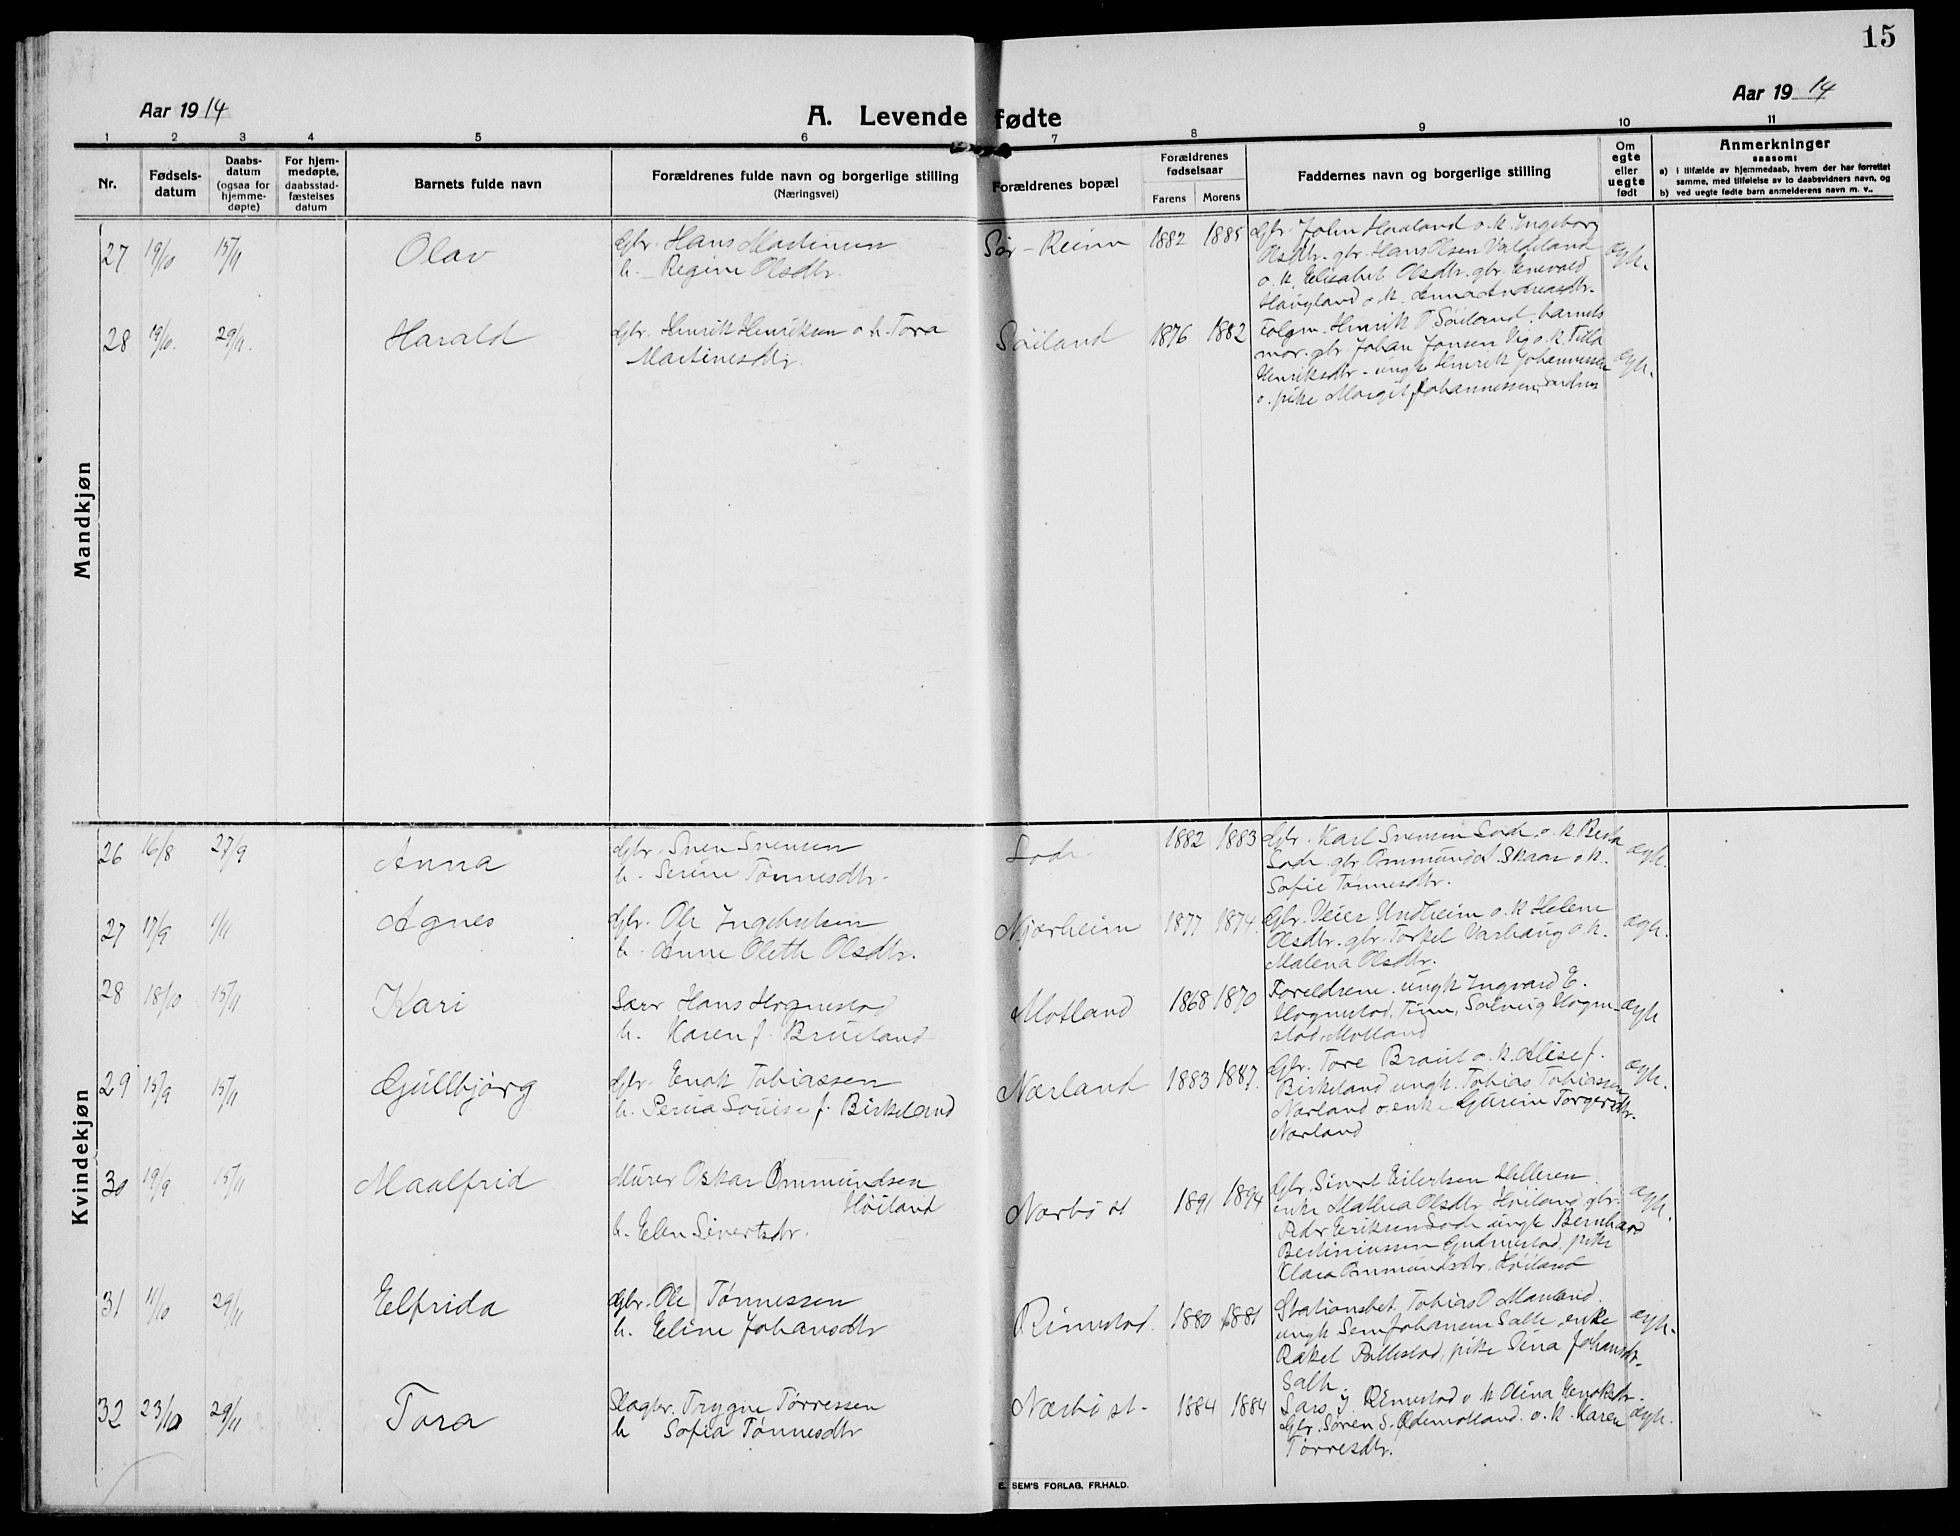 15
Aar 1914
A. Levende fødte
Aar 1914
1 2 3 4 5 6 7 8 9 10 11
Nr.
Fødsels-
datum
Daabs-
datum
(ogsaa for
hjemme-
døpte)
For hjem-
medøpte,
daabsstad-
fæstelses
datum
Barnets fulde navn
Forældrenes fulde navn og borgerlige stilling
(Næringsvei)
Forældrenes bopæl
Forældrenes
fødselsaar
Farens Morens
Faddernes navn og borgerlige stilling
Om
egte
eller
uegte
født
Anmerkninger
saasom:
a) i tilfælde av hjemmedaab, hvem der har forrettet
samme, med tilføielse av to daabsvidners navn, og
b) ved uegte fødte barn anmelderens navn m. v..
Mandkjøn
27 19/10 15/11 Olav
Gbr. Hans Martinsen
h. Regine Olsdtr.
Sør-Reime 1882 1885
Gbr. John Haaland o. k. Ingeborg
Olsdtr. gbr. Hans Olsen
o. k. Elisabet Olsdtr. gbr. Enevald
Haugland o. k. Anna Andreasdtr.
ægte.
28 19/10. 29/11. Harald
Gbr. Henrik Henriksen o. h. Tora
Martinesdtr.
Søiland 1876 1882
Folgm. Henrik Søiland, barnets
mor. gbr. Johan Jonsen o. k.
Henriksdtr - ungk. Henrik Johannessen
o. pike Margit Johannessen,
ægte.
Kvindekjøn
26 16/8 27/9 Anna
Gbr. Sven Svensen
h. Serine Tønnesdtr.
Lode 1882 1883
Gbr. Karl Svensen Lode, o. k. Berta
Lode. gbr. Ommund Skaar o k.
Sofie Tønnesdtr.
ægte.
27 17/9 1/11 Agnes
Gbr. Ole Ingebretsen
h. Anne Oleth Olsdtr.
Njærheim 1877 1874.
Gbr. Veier Undheim o. k Helene
Olsdtr. gbr. Torkel Varhaug o k.
Malena Olsdtr.
ægte.
28 18/10 15/11 Kari
Hans Hognestad
h. Karen f. Brueland
Motland 1868 1870
Foreldrene. ungk Ingvard E.
Hognestad, Solveig Hogne-
stad, Motland
ægte
29 15/9 15/11 Gullbjørg
Gbr. Enok Tobiassen
h. Louise f. Birkeland
Nærland 1883 1887.
Gbr. Tore Braut o. k. Alise f.
Birkeland ungk. Tobias Tobiassen
Nærland o. enke Gurine Torgersdtr.
Nærland
ægte.
30 19/9 15/11 Maalfrid
Murer Oskar Ommundsen
Høiland
h. Elen Sivertsdtr.
Nærbø st 1891 1894
Gbr. Sivert Eilertsen Helleren.
enke Mathea Olsdtr. Høiland gbr.
Peder Eriksen Lode ungk Bernhard
Bertiniussen Gudmestad, pike
Clara Ommundsdtr. Høiland
ægte.
31 11/10 29/11 Elfrida
Gbr. Ole Tønnessen
h. Eline Johansdtr
Rimestad. 1880 1881
Stationsbet. Tobias O Mauland.
ungk Sem Johansen Salte, enke
Rakel Pollestad, pike Sina Johansdtr.
Salte.
ægte.
32 23/10 29/11 Tora
Slagter. Trygve Tørressen
h Sofia Tønnesdtr
Nærbø st. 1884 1884
Lars J. Rimestad o k Olina Enoksdtr.
Gbr. Søren S. Ødemotland. o. k. Karen
Tørresdtr.
ægte.
E. SEM'S FORLAG, FR.HALD.